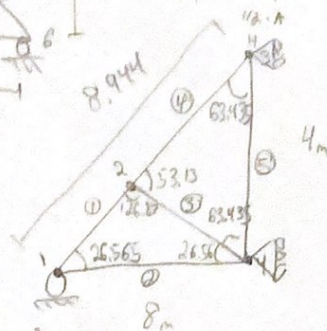 6
8.944
4
④
63.435
4 m
2
53.13
③
⑤
①
63.435
1
26.565
26.56
②
8 m